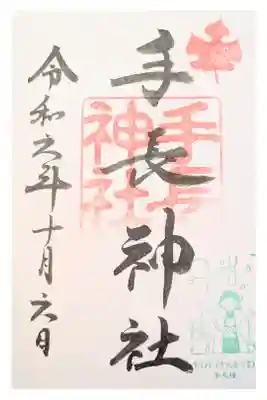 手長神社
令和六年十月六日
手長
神社